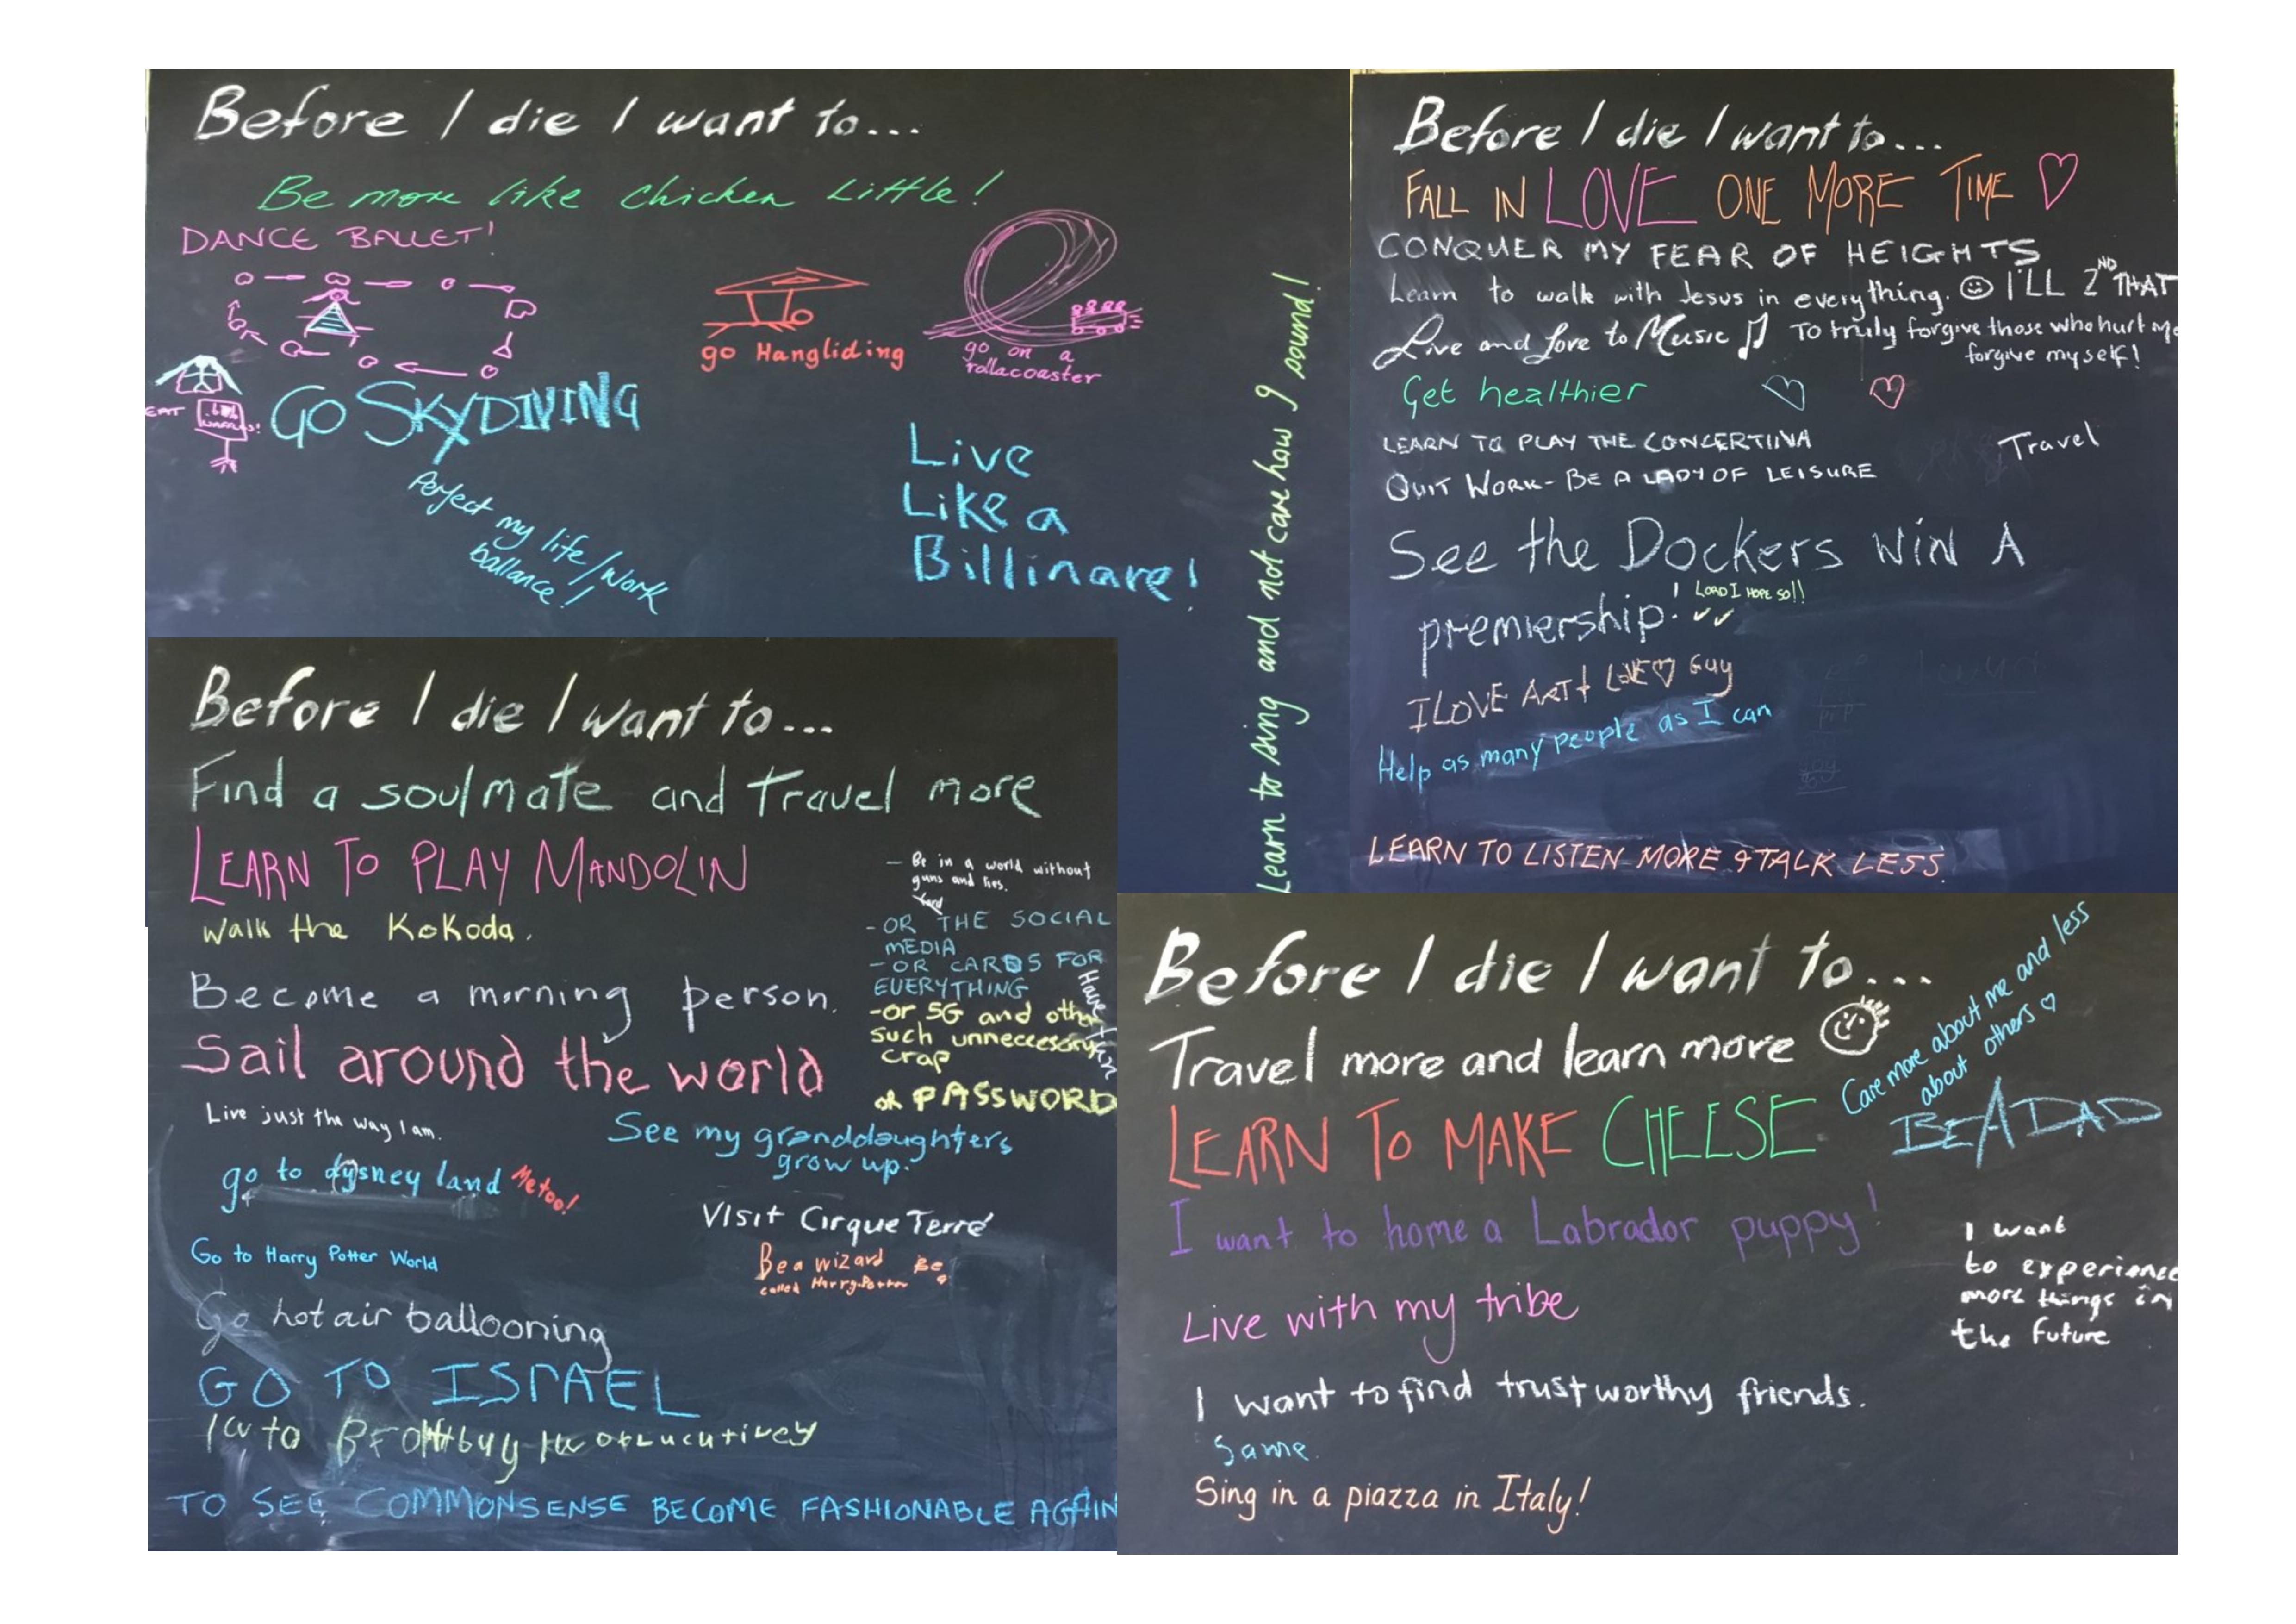 Before I die I want to...
Be more like chicken Little!
DANCE BALLET!
go Hangliding
go on a
rollacoaster
EAT
GO SKYDIVING
Perfect my life/work
ballance!
Live
Like a
Billinare!
Learn to sing and not care how I sound!
Before I die I want to...
FALL IN LOVE ONE MORE TIME
CONQUER MY FEAR OF HEIGHTS
Learn to walk with Jesus in everything. I'LL 2ND THAT
Live and Love to Music To truly forgive those who hurt me
forgive myself!
Get healthier
LEARN TO PLAY THE CONCERTINA
Travel
QUIT WORK - BE A LADY OF LEISURE
See the Dockers WIN A
premiership.
! LORD I HOPE SO!!
I LOVE ART + LOVE Guy
Help as many people as I can
LEARN TO LISTEN MORE & TALK LESS.
Before I die I want to...
Find a soulmate and travel more
LEARN TO PLAY MANDOLIN
Walk the KoKoda.
Become a morning person.
Sail around the world
- Be in a world without
guns and lies.
- OR THE SOCIAL
MEDIA
- OR CARDS FOR
EVERYTHING
- or 5G and other
such unneccessory
crap
or PASSWORD
Have fun
Live just the way I am.
See my granddaughters
grow up.
go to dysney land Me too!
Visit Cirque Terré
Go to Harry Potter World
Be a wizard Be
called Harry Potter a
Go hot air ballooning
GO TO ISrAEL
to
TO SEE COMMONSENSE BECOME FASHIONABLE AGAIN
Before I die I want to...
Travel more and learn more
Care more about me and less
about others
LEARN TO MAKE CHEESE
BE A DAD
I want to home a Labrador puppy!
I want
to experience
more things in
the future
Live with my tribe
I want to find trustworthy friends.
Same.
Sing in a piazza in Italy!